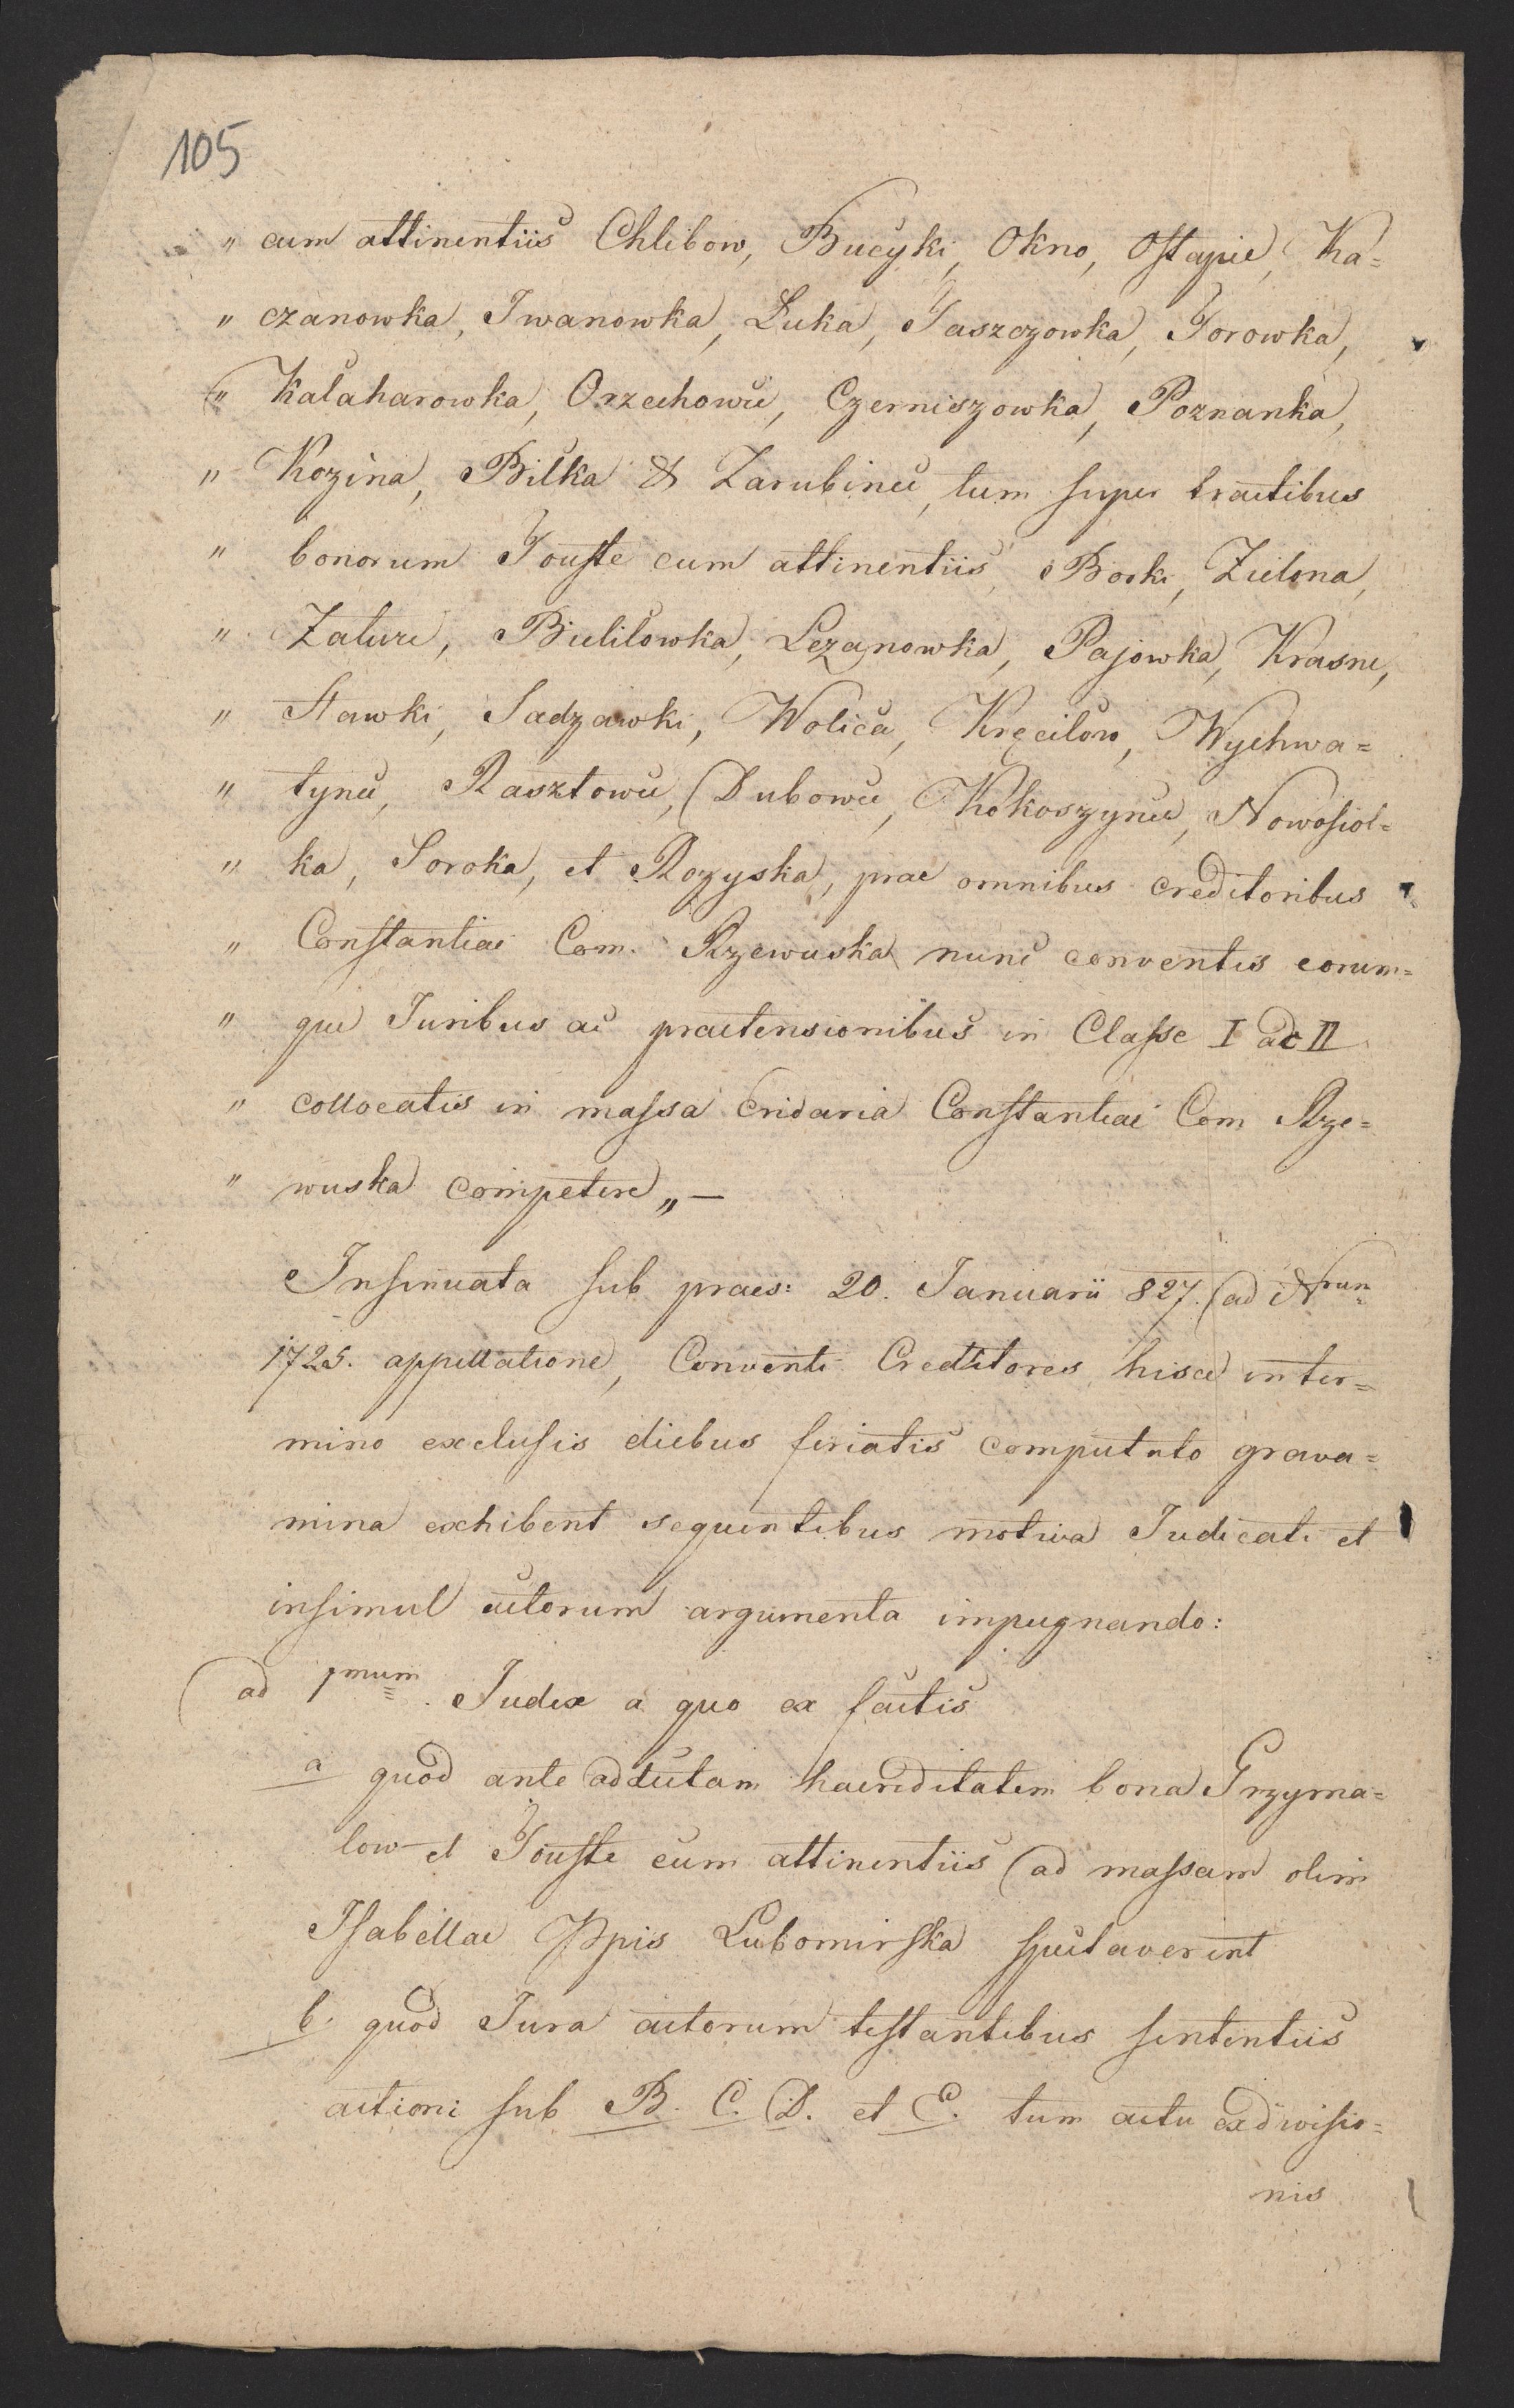 105
„ cum attinentiis Chlibow, Bucyki, Okno, Ostapie, Ka=
„ czanowka, Iwanowka, Łuka, Taszczowka, Torowka,
„ Kałaharowka, Orzechowce, Czerniszowka, Poznanka,
„ Kozina, Bilka & Zarubince, tum super tractibus
„ bonorum Touste cum attinentiis, Borki, Zielona,
„ Zaluze, Bielilowka, Lezanowka, Pajowka, Krasne,
„ Stawki, Sadzawki, Wolica, Kręcilow, Wychwa=
„ tynce, Rasztowce, Dubowce, Kokoszynce, Nowosiol=
„ ka, Soroka, et Rozyska, prae omnibus creditoribus
„ Constantiae Com. Rzewuska nunc conventis eorum=
„ que Juribus ac praetensionibus in Classe I ac II
„ collocatis in massa cridaria Constantiae Com Rze=
„ wuska competere„ —
Insinuata sub praes: 20. Januarii 827. ad Nrum
1725. appellatione, Conventi Creditores hisce in ter=
mino exclusis diebus feriatis computato grava=
mina exhibent sequentibus motiva Judicati et
insimul actorum argumenta impugnando:
ad 1mum. Judex a quo ex factis
a quod ante aditam haereditatem bona Grzyma=
low et Touste cum attinentiis ad massam olim
Isabellae Ppis Lubomirska spectaverint
b. quod Jura actorum testantibus sententiis
actioni sub B. C. D. et E. tum actu exdivisio=
nis